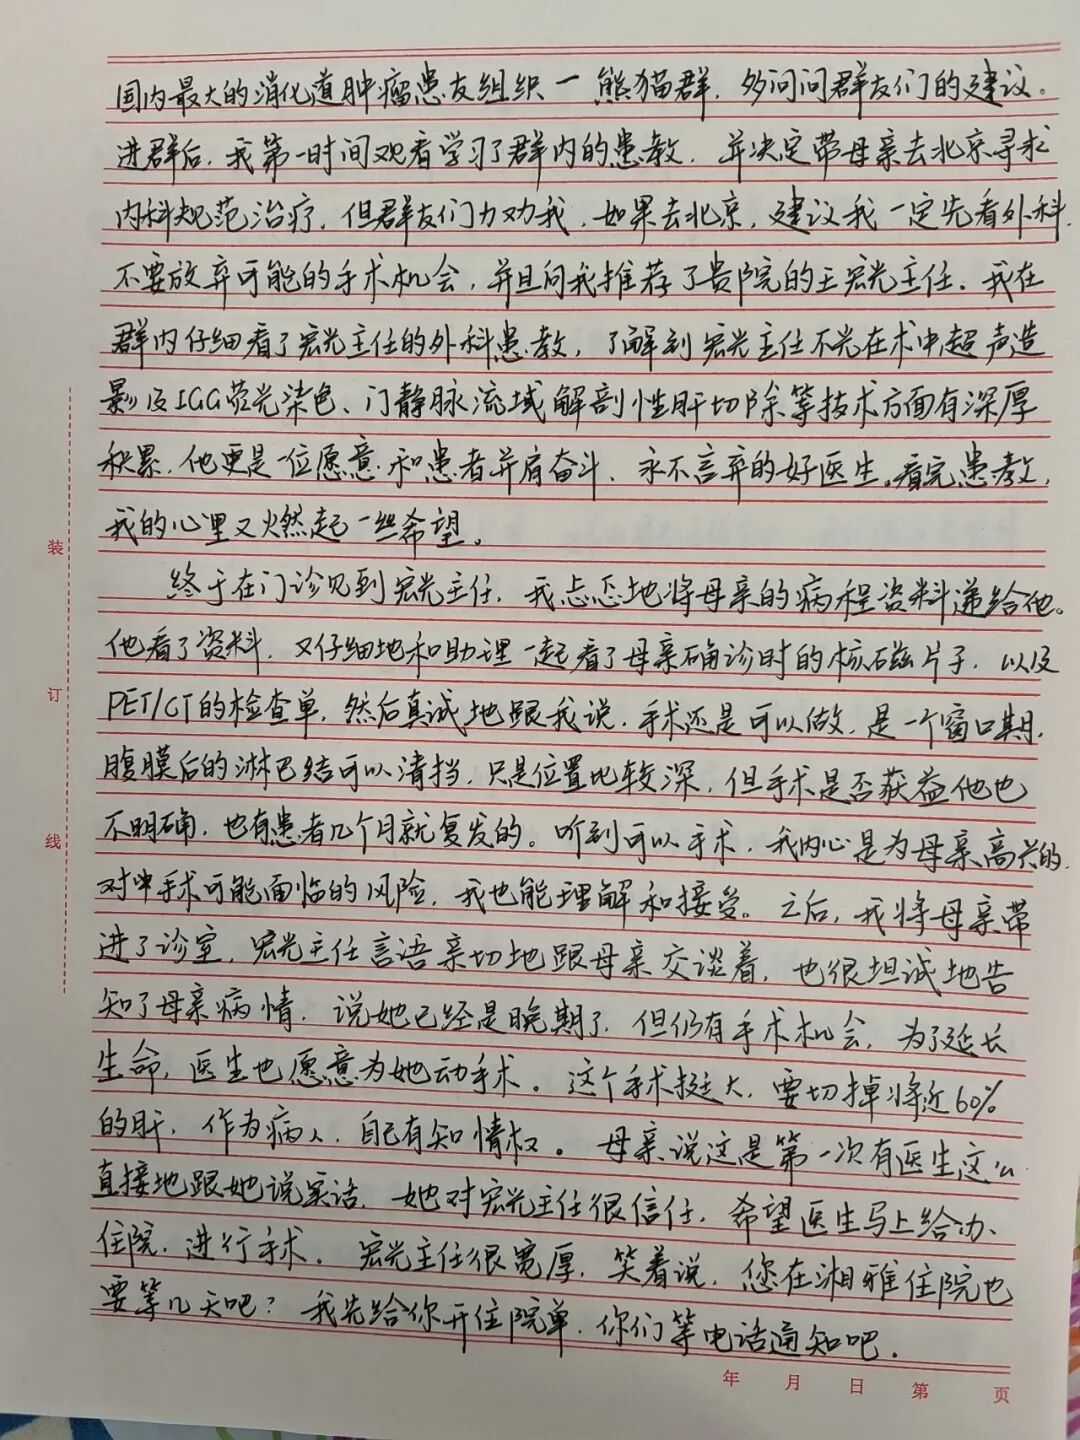 国内最大的消化道肿瘤患友组织一熊猫群，多问问群友们的建议。
进群后，我第一时间观看学习了群内的患教，并决定带母亲去北京寻求
内科规范治疗，但群友们力劝我，如果去北京，建议我一定先看外科，
不要放弃可能的手术机会，并且向我推荐了贵院的王宏光主任。我在
群内仔细看了宏光主任的外科患教，了解到宏光主任不光在术中超声造
影及ICG荧光染色、门静脉流域解剖性肝切除等技术方面有深厚
积累，他更是一位愿意和患者并肩奋斗、永不言弃的好医生。看完患教，
我的心里又燃起一丝希望。
终于在门诊见到宏光主任，我忐忑地将母亲的病程资料递给他。
他看了资料，又仔细地和助理一起看了母亲确诊时的核磁片子，以及
PET/CT的检查单，然后真诚地跟我说，手术还是可以做，是一个窗口期，
腹膜后的淋巴结可以清挡，只是位置比较深，但手术是否获益他也
不明确，也有患者几个月就复发的。听到可以手术，我内心是为母亲高兴的，
对于手术可能面临的风险，我也能理解和接受。之后，我将母亲带
进了诊室，宏光主任言语亲切地跟母亲交谈着，也很坦诚地告
知了母亲病情，说她已经是晚期了，但仍有手术机会，为了延长
生命，医生也愿意为她动手术。这个手术挺大，要切掉将近60%
的肝，作为病人，自己有知情权。母亲说这是第一次有医生这么
直接地跟她说实话，她对宏光主任很信任，希望医生马上给办、
住院，进行手术。宏光主任很宽厚，笑着说，您在湘雅住院也
要等几天吧？我先给你开住院单，你们等电话通知吧。
装
订
线
年 月 日 第 页